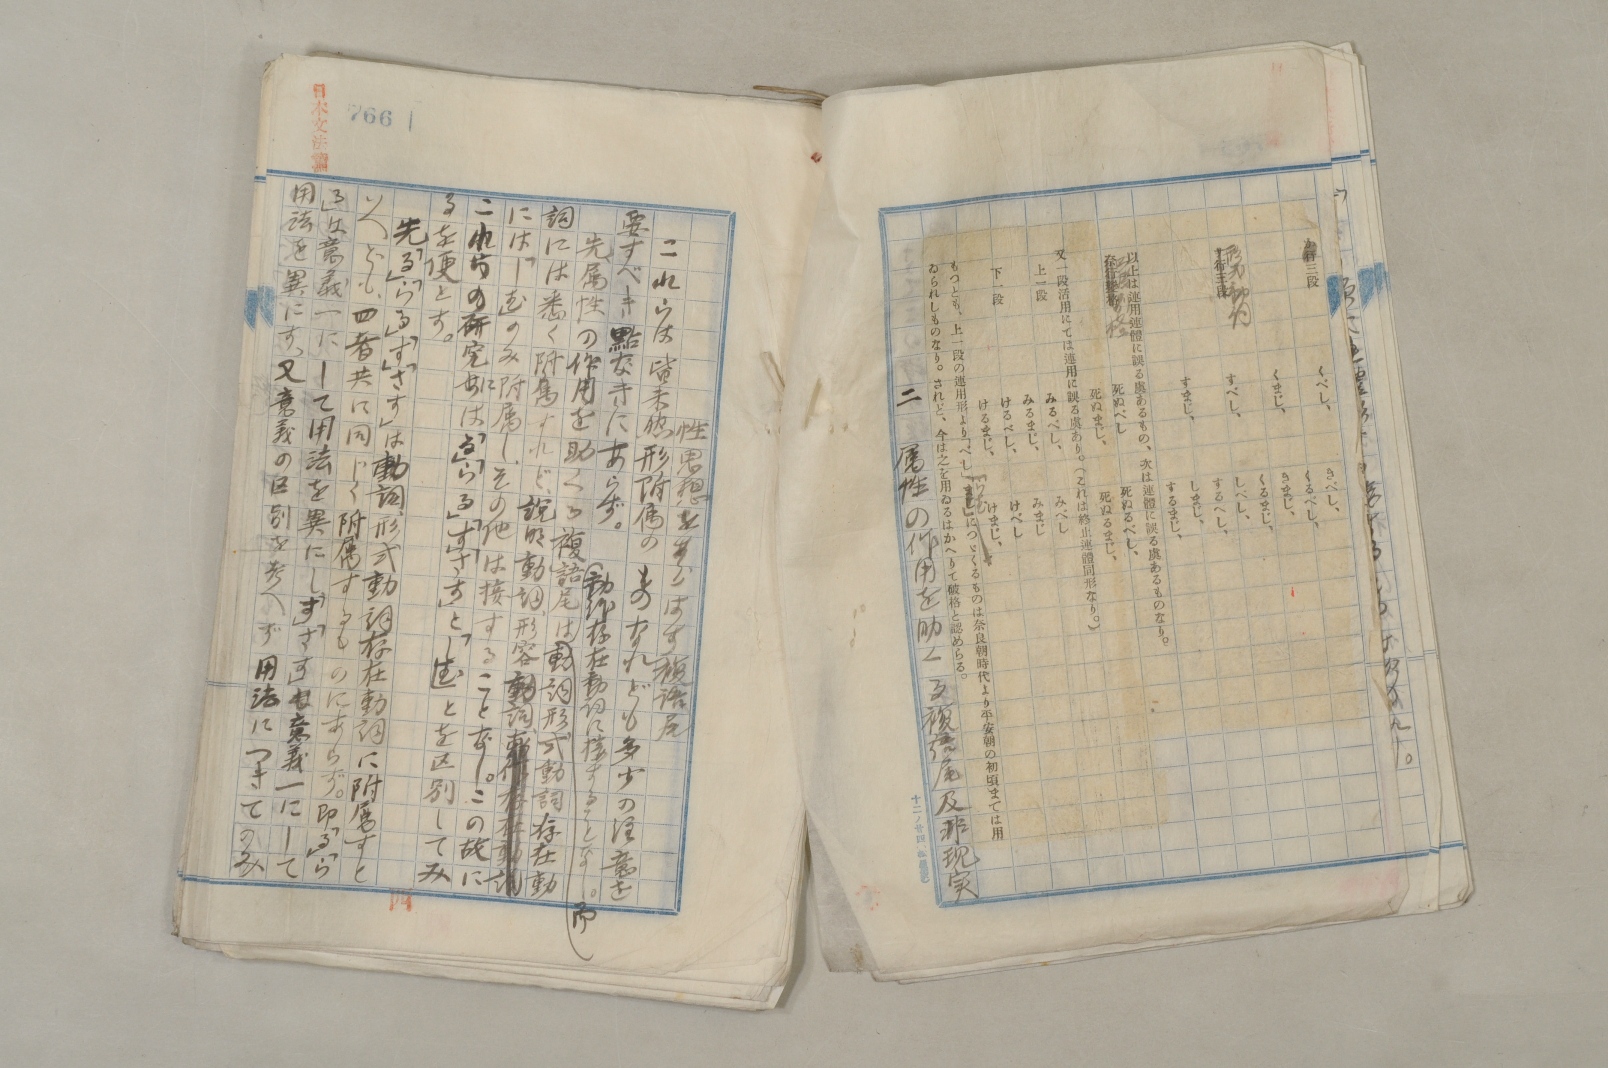 か行三段
くべし、
きべし、
くるべし、
くまじ、
きまじ、
くるまじ、
形式動詞
すべし、
しべし、
するべし、
すまじ、
しまじ、
するまじ、
以上は連用連體に誤る虞あるもの、次は連體に誤る虞あるものなり。
死ぬべし
死ぬるべし、
死ぬまじ、
死ぬるまじ、
又一段活用にては連用に誤る虞あり。(これは終止連體同形なり。)
上一段
みるべし、
みべし
みるまじ、
みまじ
下一段
けるべし、
けべし
けるまじ、
けまじ、
もつとも、上一段の連用形より「べし」「らむ」につゞくるものは奈良朝時代より平安朝の初頃までは用
ゐられしものなり。されど、今は之を用ゐるはかへりて破格と認めらる。
二 属性の作用を助くる複語尾及非現実
性思想をあらはす複語尾
これらは皆未然形附属のものなれども多少の注意を
要すべき點なきにあらず。
先属性の作用を助くる複語尾は動詞形式動詞存在動
(動作存在動詞に接することなし。而
詞には悉く附属すれど、説明動詞、形容動詞、
には「しむ」のみ附属し、その他は接することなし。この故に
これらの研究には「る」「らる」「す」「さす」と「しむ」とを区別してみ
るを便とす。
先「る」「らる」「す」「さす」は動詞形式動詞存在動詞に附属すと
いへども、四者共に同じく附属するものにあらず。即「る」「ら
る」は意義一にして用法を異にし「す」「さす」も意義一にして
用法を異にす。又意義の区別を考へず用法につきてのみ
766
日本文法論
四